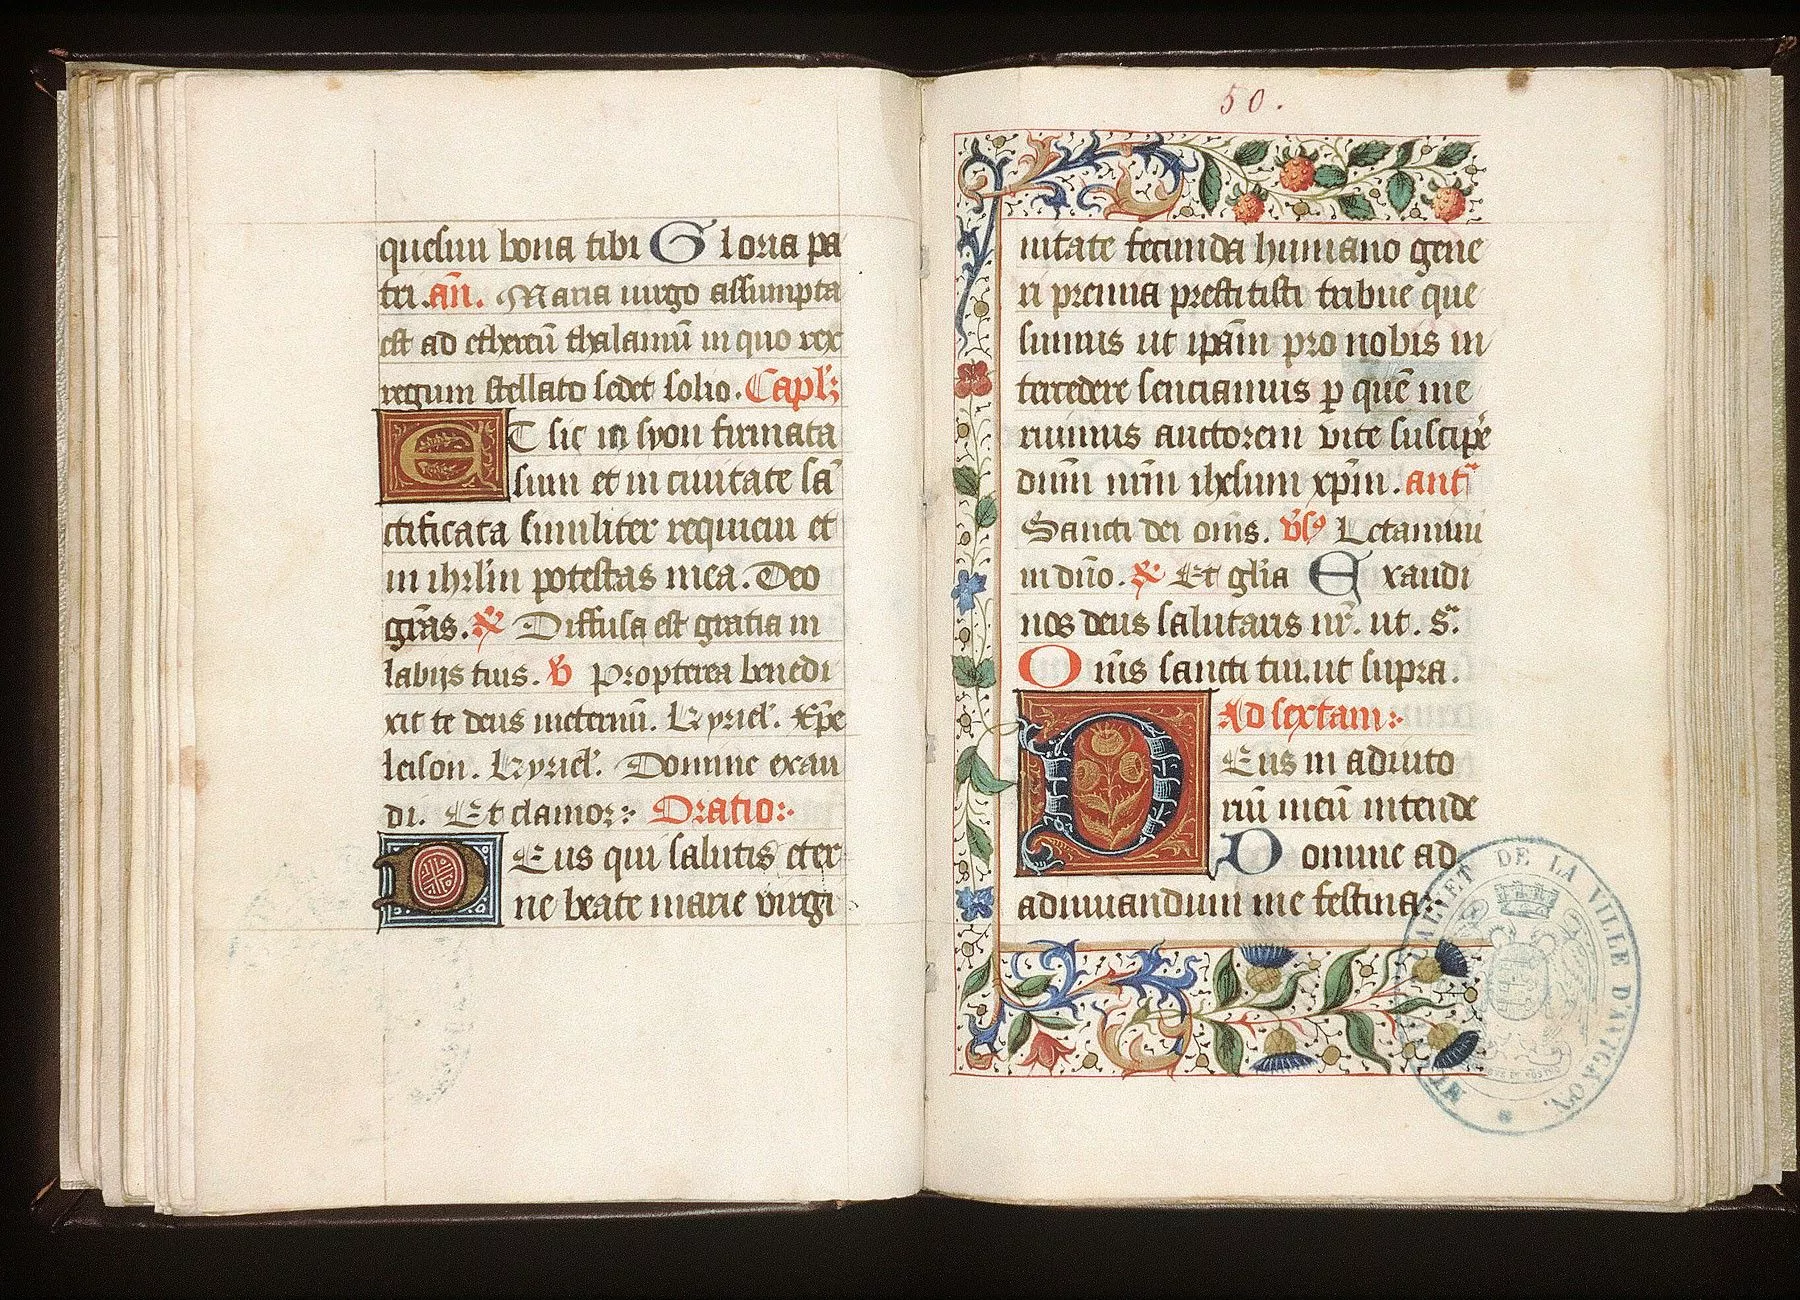 quesiui bona tibi Gloria pa
tri. an̄. Maria uirgo assumpta
est ad ethereū thalamū in quo rex
regum stellato sedet solio. Capl'.
ET sic in syon firmata
sum et in ciuitate sā
ctificata similiter requieui et
in ihrl̄m potestas mea. Deo
gr̄as. ℟ Diffusa est gratia in
labijs tuis. ℣ Propterea benedi
xit te deus ineternū. Kyriel'. Xp̄e
leison. Kyriel'. Domine exau
di. Et clamor: Oratio:
DEus qui salutis eter
ne beate marie virgi
50.
nitate fecunda humano gene
ri premia prestitisti tribue que
sumus ut ipām pro nobis in
tercedere senciamus p quē me
ruimus auctorem vite suscipe
dn̄m nr̄m ihesum xp̄m. ant̄
Sancti dei om̄s. v̄s Letamini
in dn̄o. ℟ Et gl̄ia Exaudi
nos deus salutaris nr̄. ut. s̄.
Om̄s sancti tui. ut supra.
Ad sextam:
DEus in adiuto
riū meū intende
Domine ad
adiuuandum me festina.
CALVET DE LA VILLE D'AVIGNON.